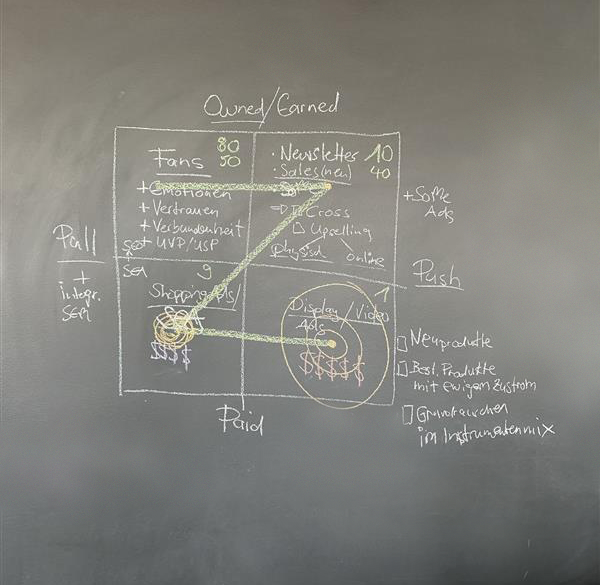 Owned/Earned
80
50
Fans
+ Emotionen
+ Vertrauen
+ Verbundenheit
+ UVP/USP
• Newsletter 10
• Sales (neu) 40
Cross
Upselling
Physisch online
+ SoMe
Ads
Pull
+
integr.
SEM
SEO
SEA
Push
9
Shopping Ads/
$ $ $ $
1
Display/Video
Ads
$ $ $ $ $
Neuprodukte
Best. Produkte
mit ewigem Zustrom
im Instrumentenmix
Paid